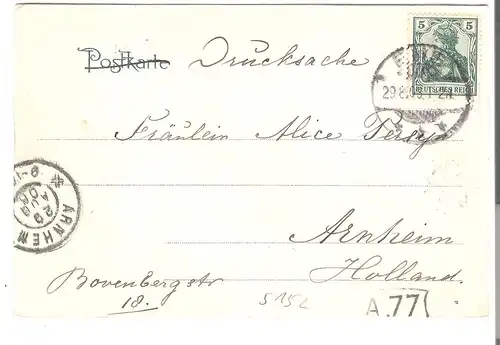 Postkarte Drucksache
5
DEUTSCHES REICH
29.8.
Fräulein Alice Persyn
Arnheim
Holland.
Bovenbergstr
18.
ARNHEM
29
AUG
06
515L
A.77